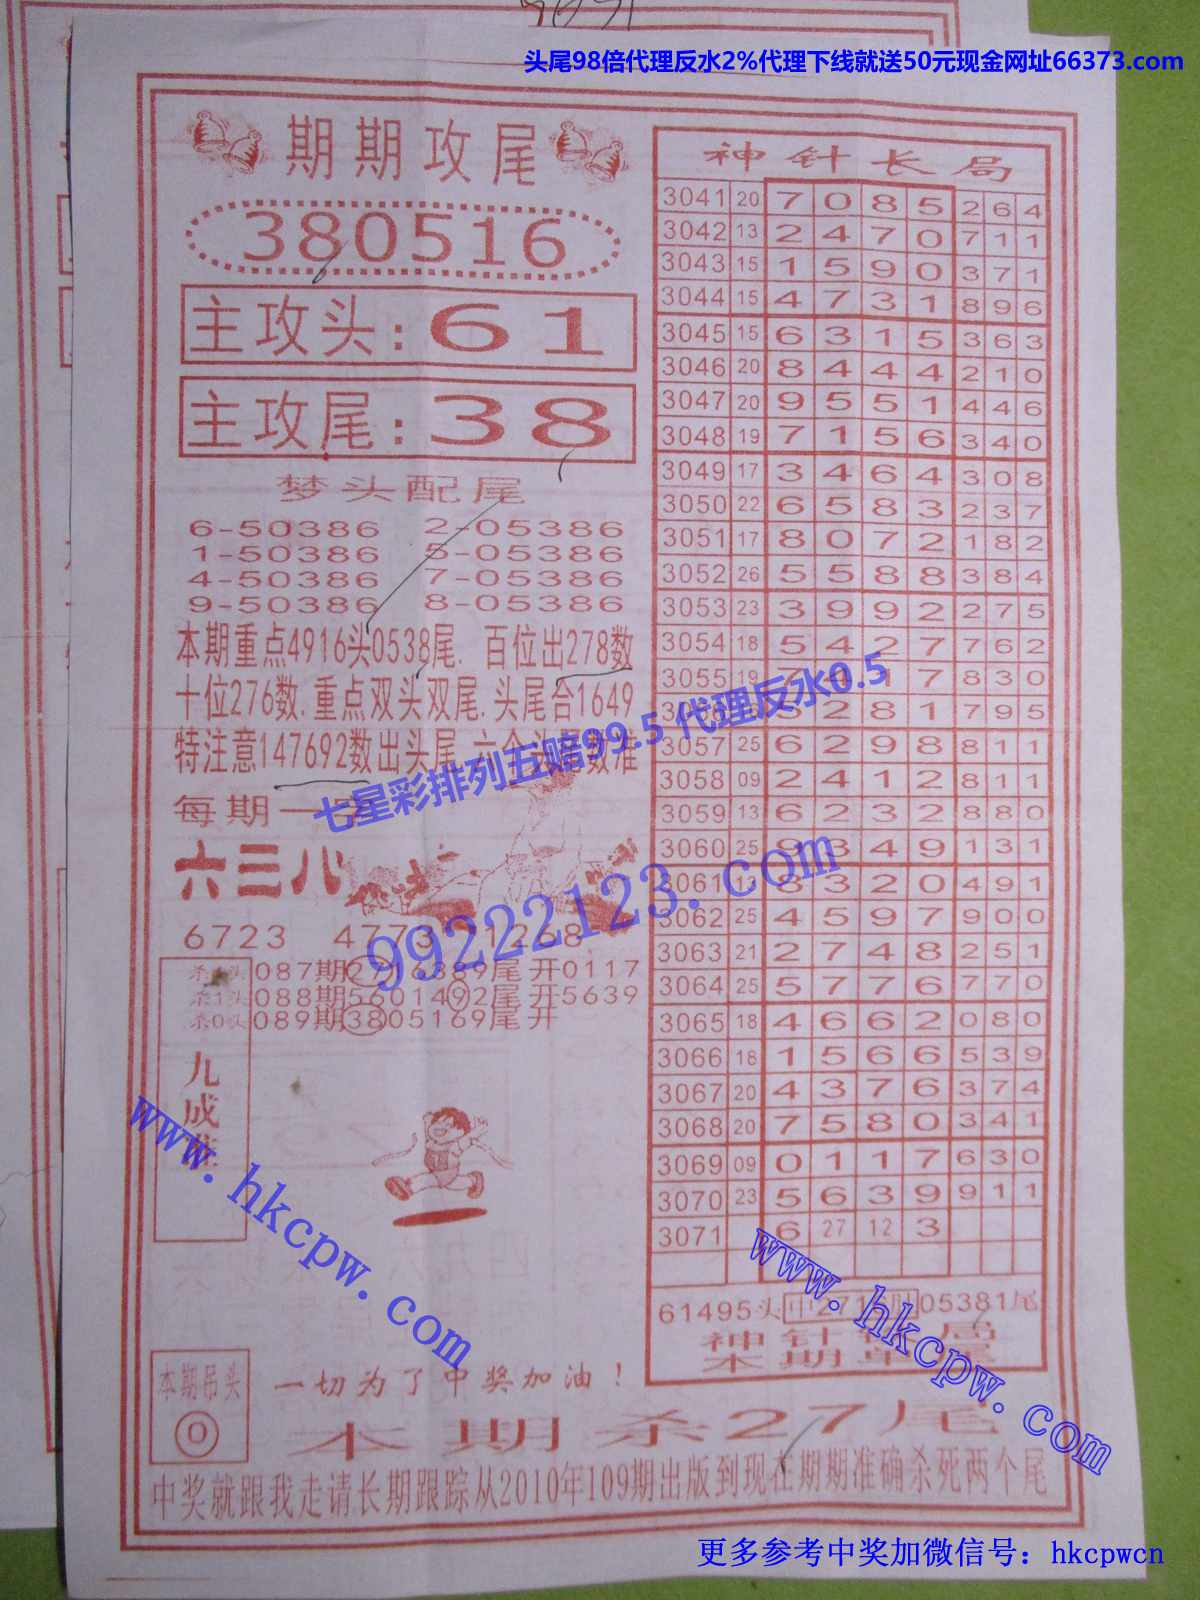 头尾98倍代理反水2%代理下线就送50元现金网址66373.com
期期攻尾
380516
主攻头:61
主攻尾:38
梦头配尾
6-50386 2-05386
1-50386 5-05386
4-50386 7-05386
9-50386 8-05386
本期重点4916头0538尾. 百位出278数
十位276数.重点双头双尾.头尾合1649
特注意147692数出头尾.六个头尾数准
每期一
六三八
6723 4773 1268
087期2716389尾开0117
杀1头088期5601492尾开5639
杀0头089期3805169尾开
九成
本期吊头
0
一切为了中奖加油！
神针长局
3041 20 7 0 8 5 2 6 4
3042 13 2 4 7 0 7 1 1
3043 15 1 5 9 0 3 7 1
3044 15 4 7 3 1 8 9 6
3045 15 6 3 1 5 3 6 3
3046 20 8 4 4 4 2 1 0
3047 20 9 5 5 1 4 4 6
3048 19 7 1 5 6 3 4 0
3049 17 3 4 6 4 3 0 8
3050 22 6 5 8 3 2 3 7
3051 17 8 0 7 2 1 8 2
3052 26 5 5 8 8 3 8 4
3053 23 3 9 9 2 2 7 5
3054 18 5 4 2 7 7 6 2
3055 19 7 4 1 7 8 3 0
2 8 1 7 9 5
3057 25 6 2 9 8 8 1 1
3058 09 2 4 1 2 8 1 1
3059 13 6 2 3 2 8 8 0
3060 25 9 3 4 9 1 3 1
3061 13 8 3 2 0 4 9 1
3062 25 4 5 9 7 9 0 0
3063 21 2 7 4 8 2 5 1
3064 25 5 7 7 6 7 7 0
3065 18 4 6 6 2 0 8 0
3066 18 1 5 6 6 5 3 9
3067 20 4 3 7 6 3 7 4
3068 20 7 5 8 0 3 4 1
3069 09 0 1 1 7 6 3 0
3070 23 5 6 3 9 9 1 1
3071 6 27 12 3
61495头 中271 05381尾
神针 局
本期
本期杀27尾
中奖就跟我走请长期跟踪从2010年109期出版到现在期期准确杀死两个尾
七星彩排列五赔99.5 代理反水0.5
99222123.com
www.hkcpw.com
www.hkcpw.com
更多参考中奖加微信号：hkcpwcn